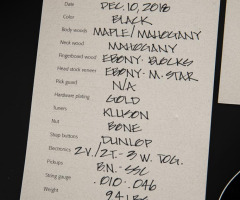 Date DEC. 10, 2018
Color BLACK
Body woods MAPLE/MAHOGANY
Neck wood MAHOGANY
Fingerboard wood EBONY · BLOCKS
Head stock veneer EBONY · M. STAR
Pick guard N/A
Hardware plating GOLD
Tuners KLUSON
Nut BONE
Strap buttons DUNLOP
Electronics 2-V./2T.- 3 W. TOG.
Pickups B.N.- SSC
String gauge .010 - .046
Weight 9.4 LBS